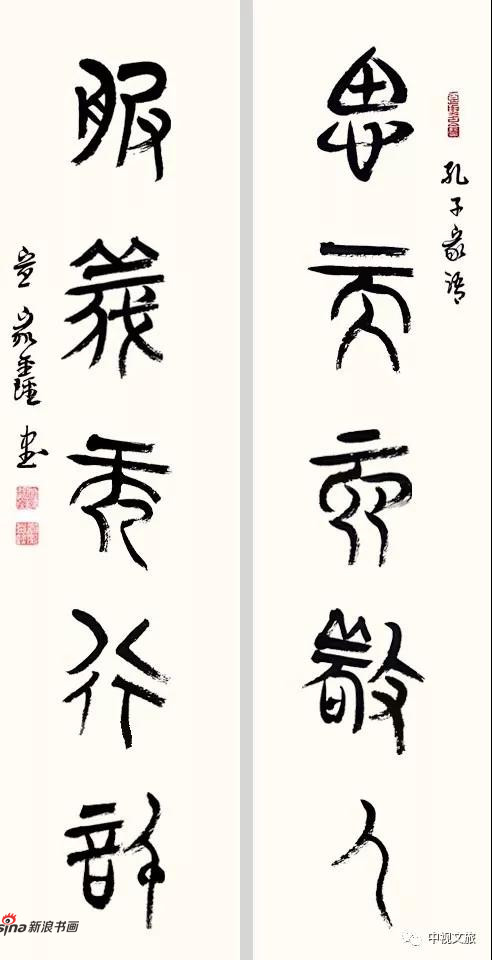 孔子家語
思天而敬人
服義而行信
宣家鑫書
sina新浪书画
中视文旅